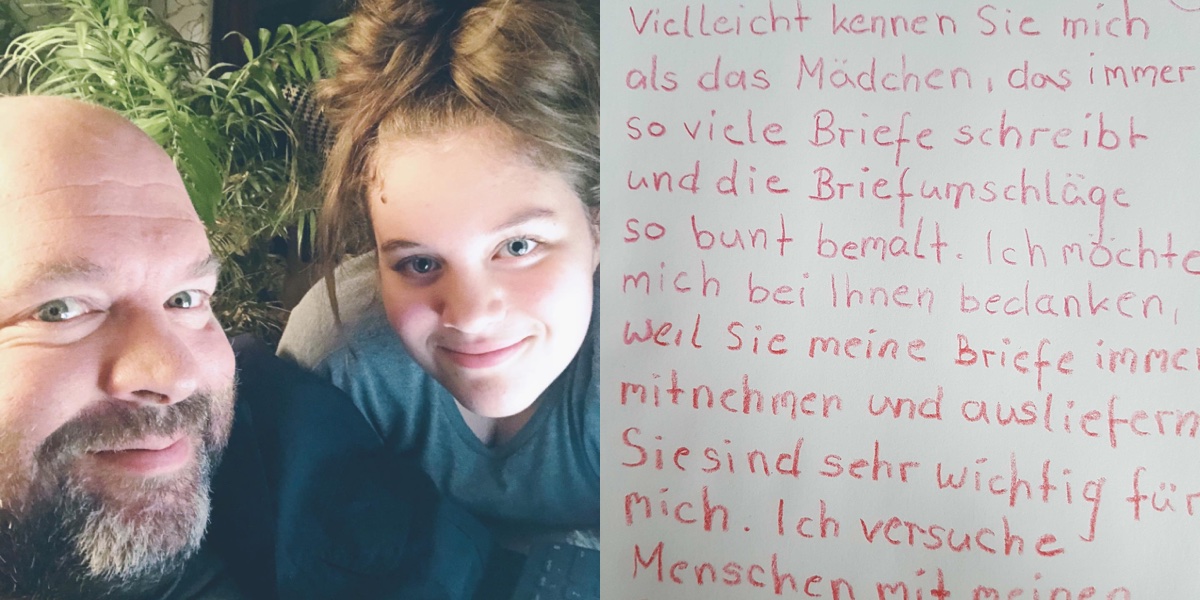 Vielleicht kennen Sie mich
als das Mädchen, das immer
so viele Briefe schreibt
und die Briefumschläge
so bunt bemalt. Ich möchte
mich bei Ihnen bedanken,
weil Sie meine Briefe immer
mitnehmen und ausliefern
Sie sind sehr wichtig für
mich. Ich versuche
Menschen mit meinen